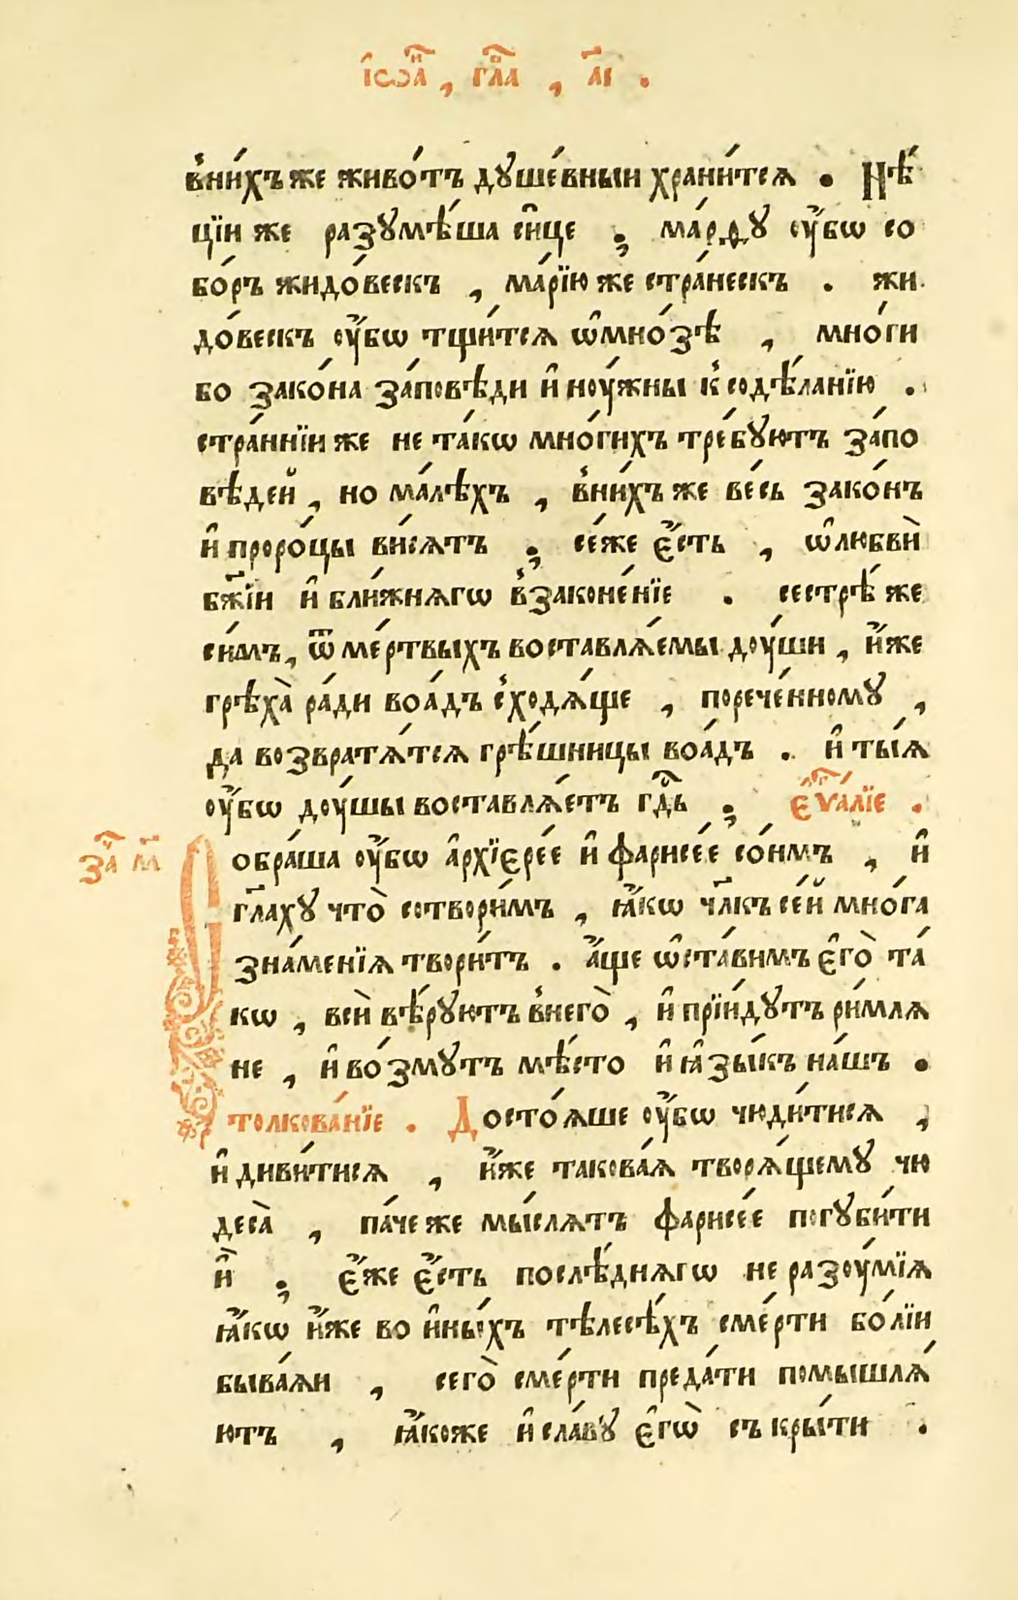 і҆ѡа҃н , гла҃в , а҃і .
в҆ни́хъ же живо́тъ дꙋше́вныи храни́тсѧ . Нѣ́
цїи же разꙋмѣ́ша си́це ; ма́рѳꙋ оу҆́бѡ со
бо́ръ жидо́вескъ , ма́рїю же стра́нескъ . жи
до́вескъ оу҆́бѡ тщи́тсѧ ѡ҆мно́зѣ , мно́ги
бо зако́на за́повѣди и҆ ноу́жны к҆ содѣ́ланїю .
стра́ннїи же не та́кѡ мно́гихъ тре́бꙋютъ за́по
вѣдей , но ма́лѣхъ , в҆ни́хъ же ве́сь зако́нъ
и҆ проро́цы ви́сѧтъ ; се́же є҆́сть , ѡ҆любвѝ
бж҃їи и҆ бли́жнѧгѡ в҆законе́нїе . сестрѣ́ же
си́мъ , ѿ ме́ртвыхъ воставлѧ́емы доу́ши , и҆́же
грѣха̀ ра́ди во а́дъ с҆ходѧ́ще , по рече́нномꙋ ,
да возвратѧ́тсѧ грѣ́шницы во а́дъ . и҆ ты́ѧ
оу҆́бѡ доу́шы воставлѧ́етъ гд҃ь ; є҆ѵа҃лїе .
за҃ч м҃
Собра́ша оу҆́бѡ а҆рхїєре́е и҆ фарисе́е со́нмъ , и҆
гл҃ахꙋ что̀ сотвори́мъ , ꙗ҆́кѡ чл҃къ се́й мно́га
зна́менїѧ твори́тъ . а҆́ще ѡ҆ста́вимъ є҆го̀ та́
кѡ , всѝ вѣ́рꙋютъ в҆него̀ , и҆ прїи́дꙋтъ ри́млѧ
не , и҆ во́змꙋтъ мѣ́сто и҆ ꙗ҆зы́къ на́шъ .
толкова́нїе . Досто́ѧше оу҆́бѡ чюди́тисѧ ,
и҆ диви́тисѧ , и҆́же такова́ѧ творѧ́щемꙋ чю
деса̀ , па́че же мы́слѧтъ фарисе́е погꙋби́ти
и҆̀ ; є҆́же є҆́сть послѣ́днѧгѡ не разоу́мїѧ
ꙗ҆́кѡ и҆́же во и҆ны́хъ тѣлесѣ́хъ сме́рти бо́лїи
быва́ѧи , сего̀ сме́рти преда́ти помышлѧ́
ютъ , ꙗ҆́коже и҆ сла́вꙋ є҆гѡ̀ съ кры́ти .